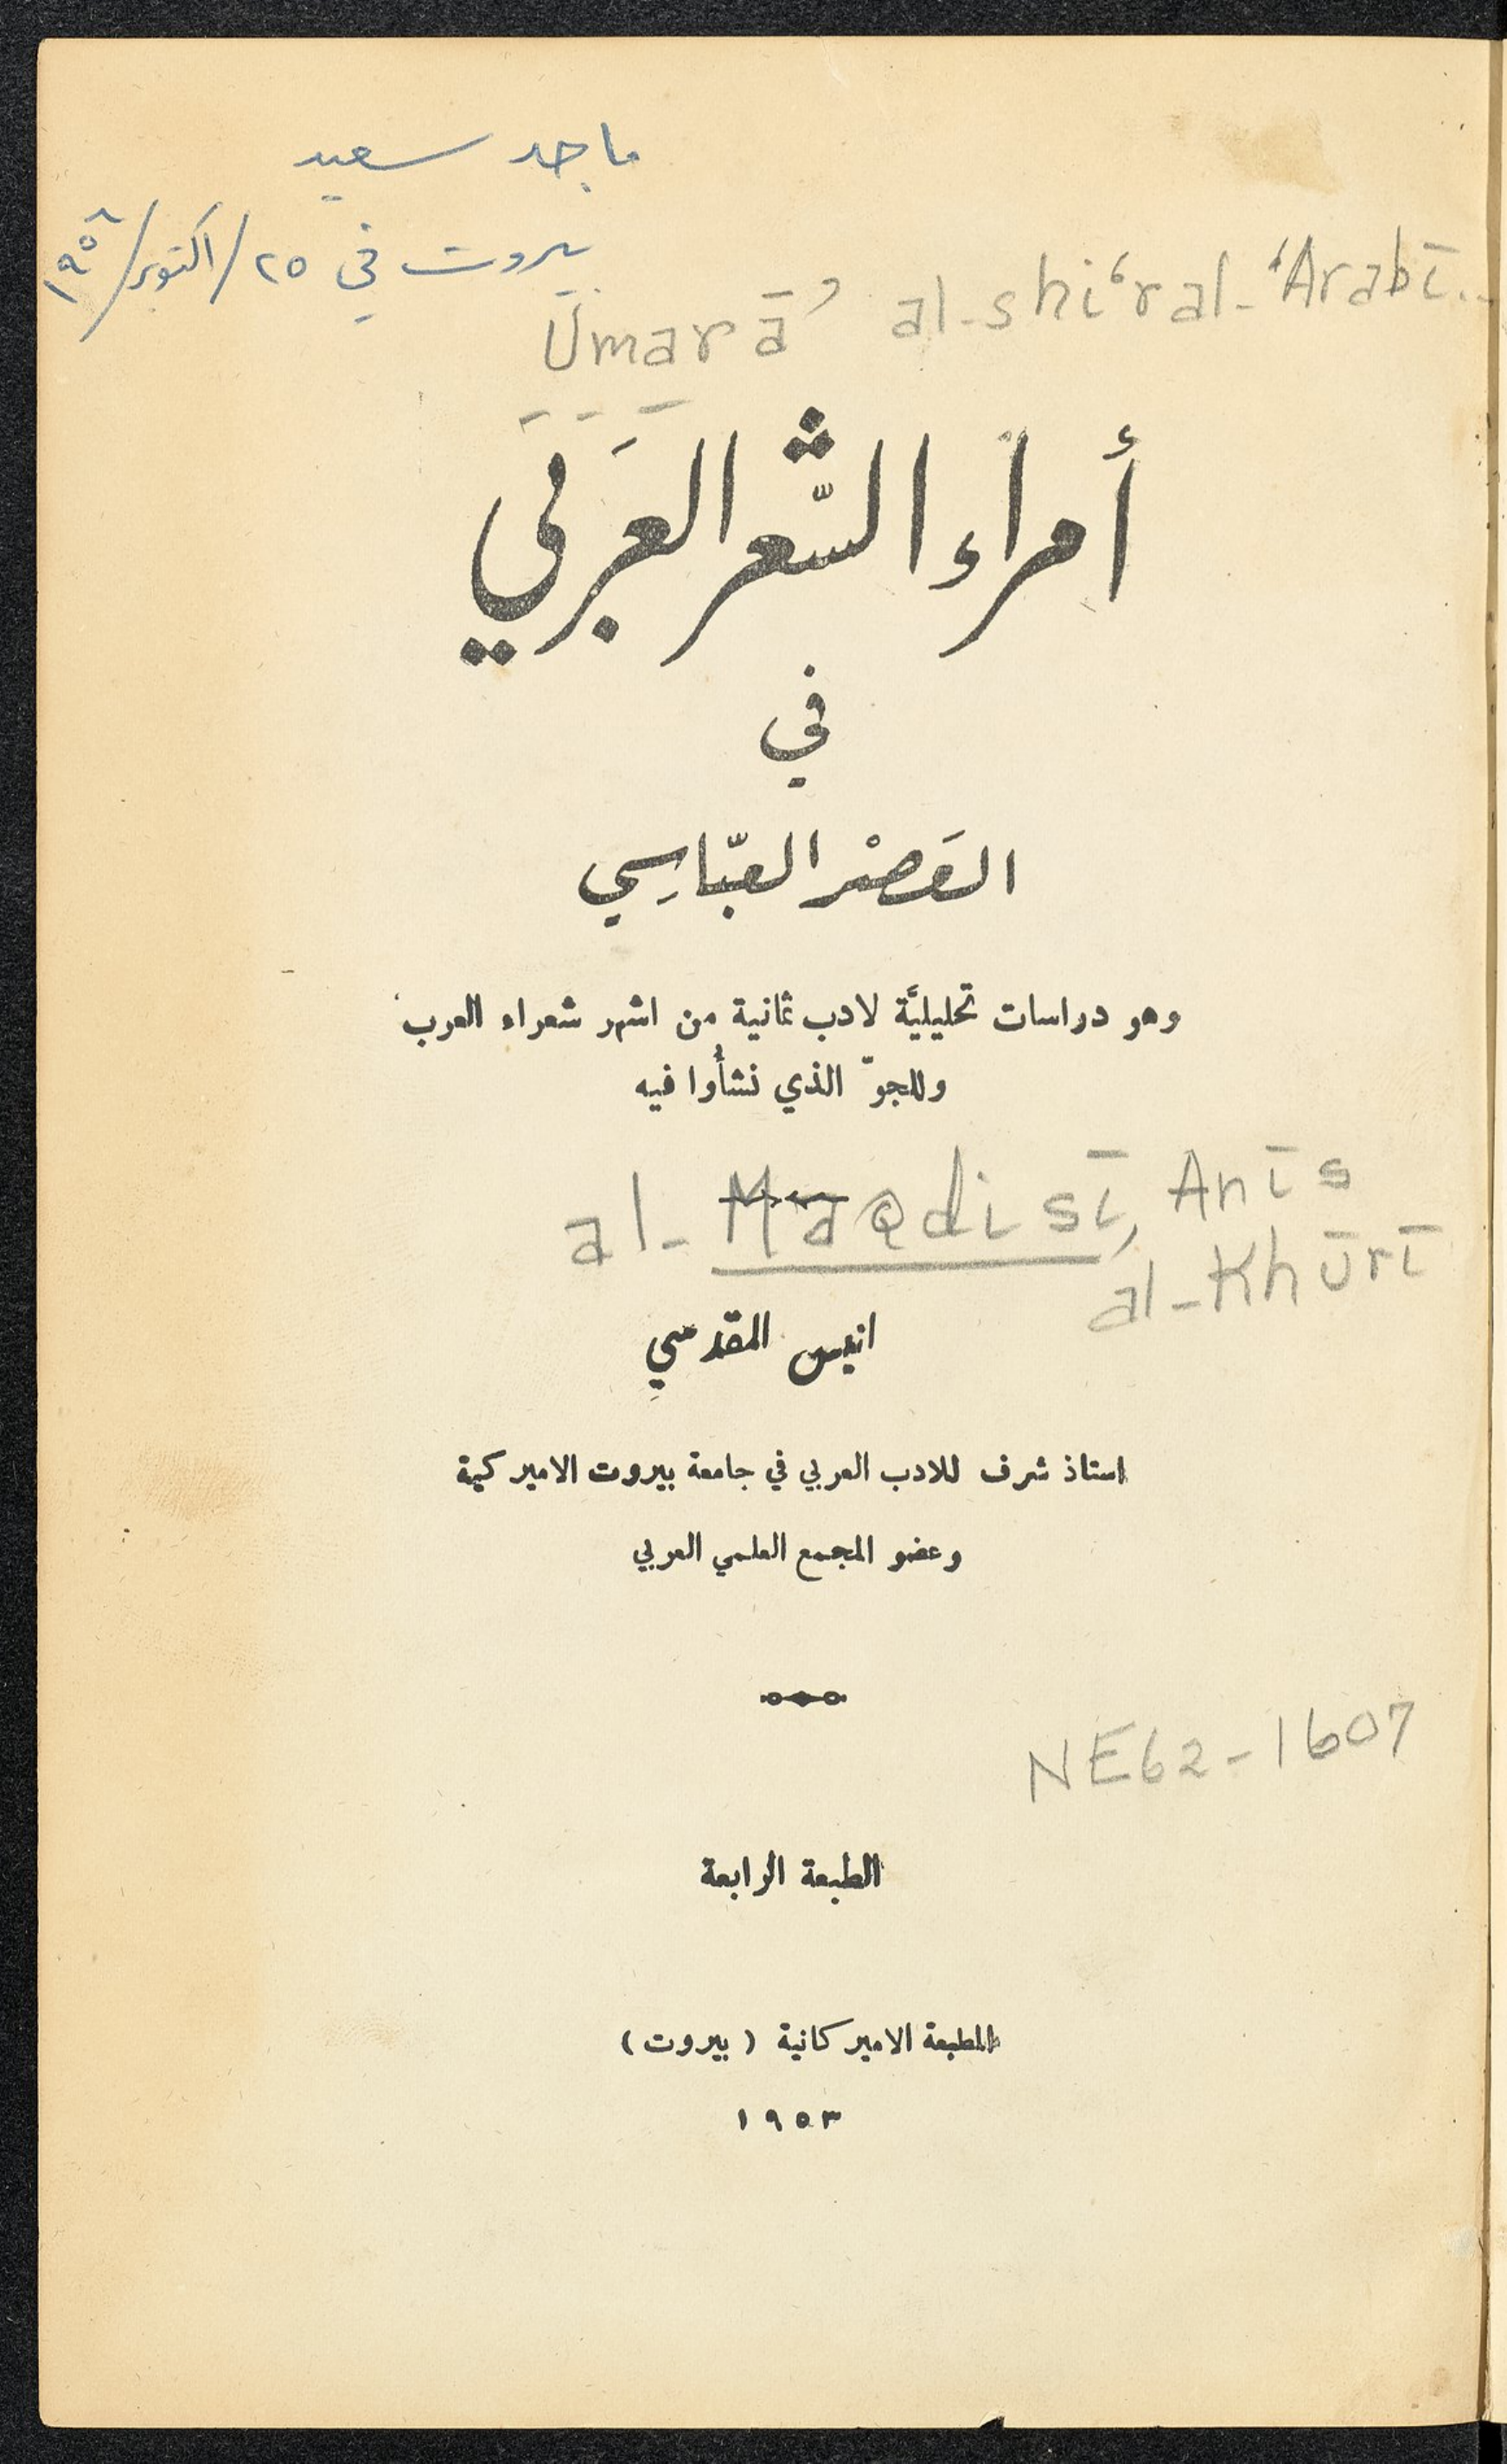 ماجد سعيد
بيروت في ٢٥/اكتوبر/١٩٥٨
Umarā’ al-shi‘r al-‘Arabī..
أمراء الشّعر العَرَبي
في
العَصْر العبّاسِي
وهو دراسات تحليليَّة لادب ثمانية من اشهر شعراء العرب
وللجوّ الذي نشأُوا فيه
al-Maqdisī, Anīs
al-Khūrī
انيس المقدسي
استاذ شرف للادب العربي في جامعة بيروت الاميركية
وعضو المجمع العلمي العربي
NE62-1607
الطبعة الرابعة
المطبعة الاميركانية (بيروت)
١٩٥٣